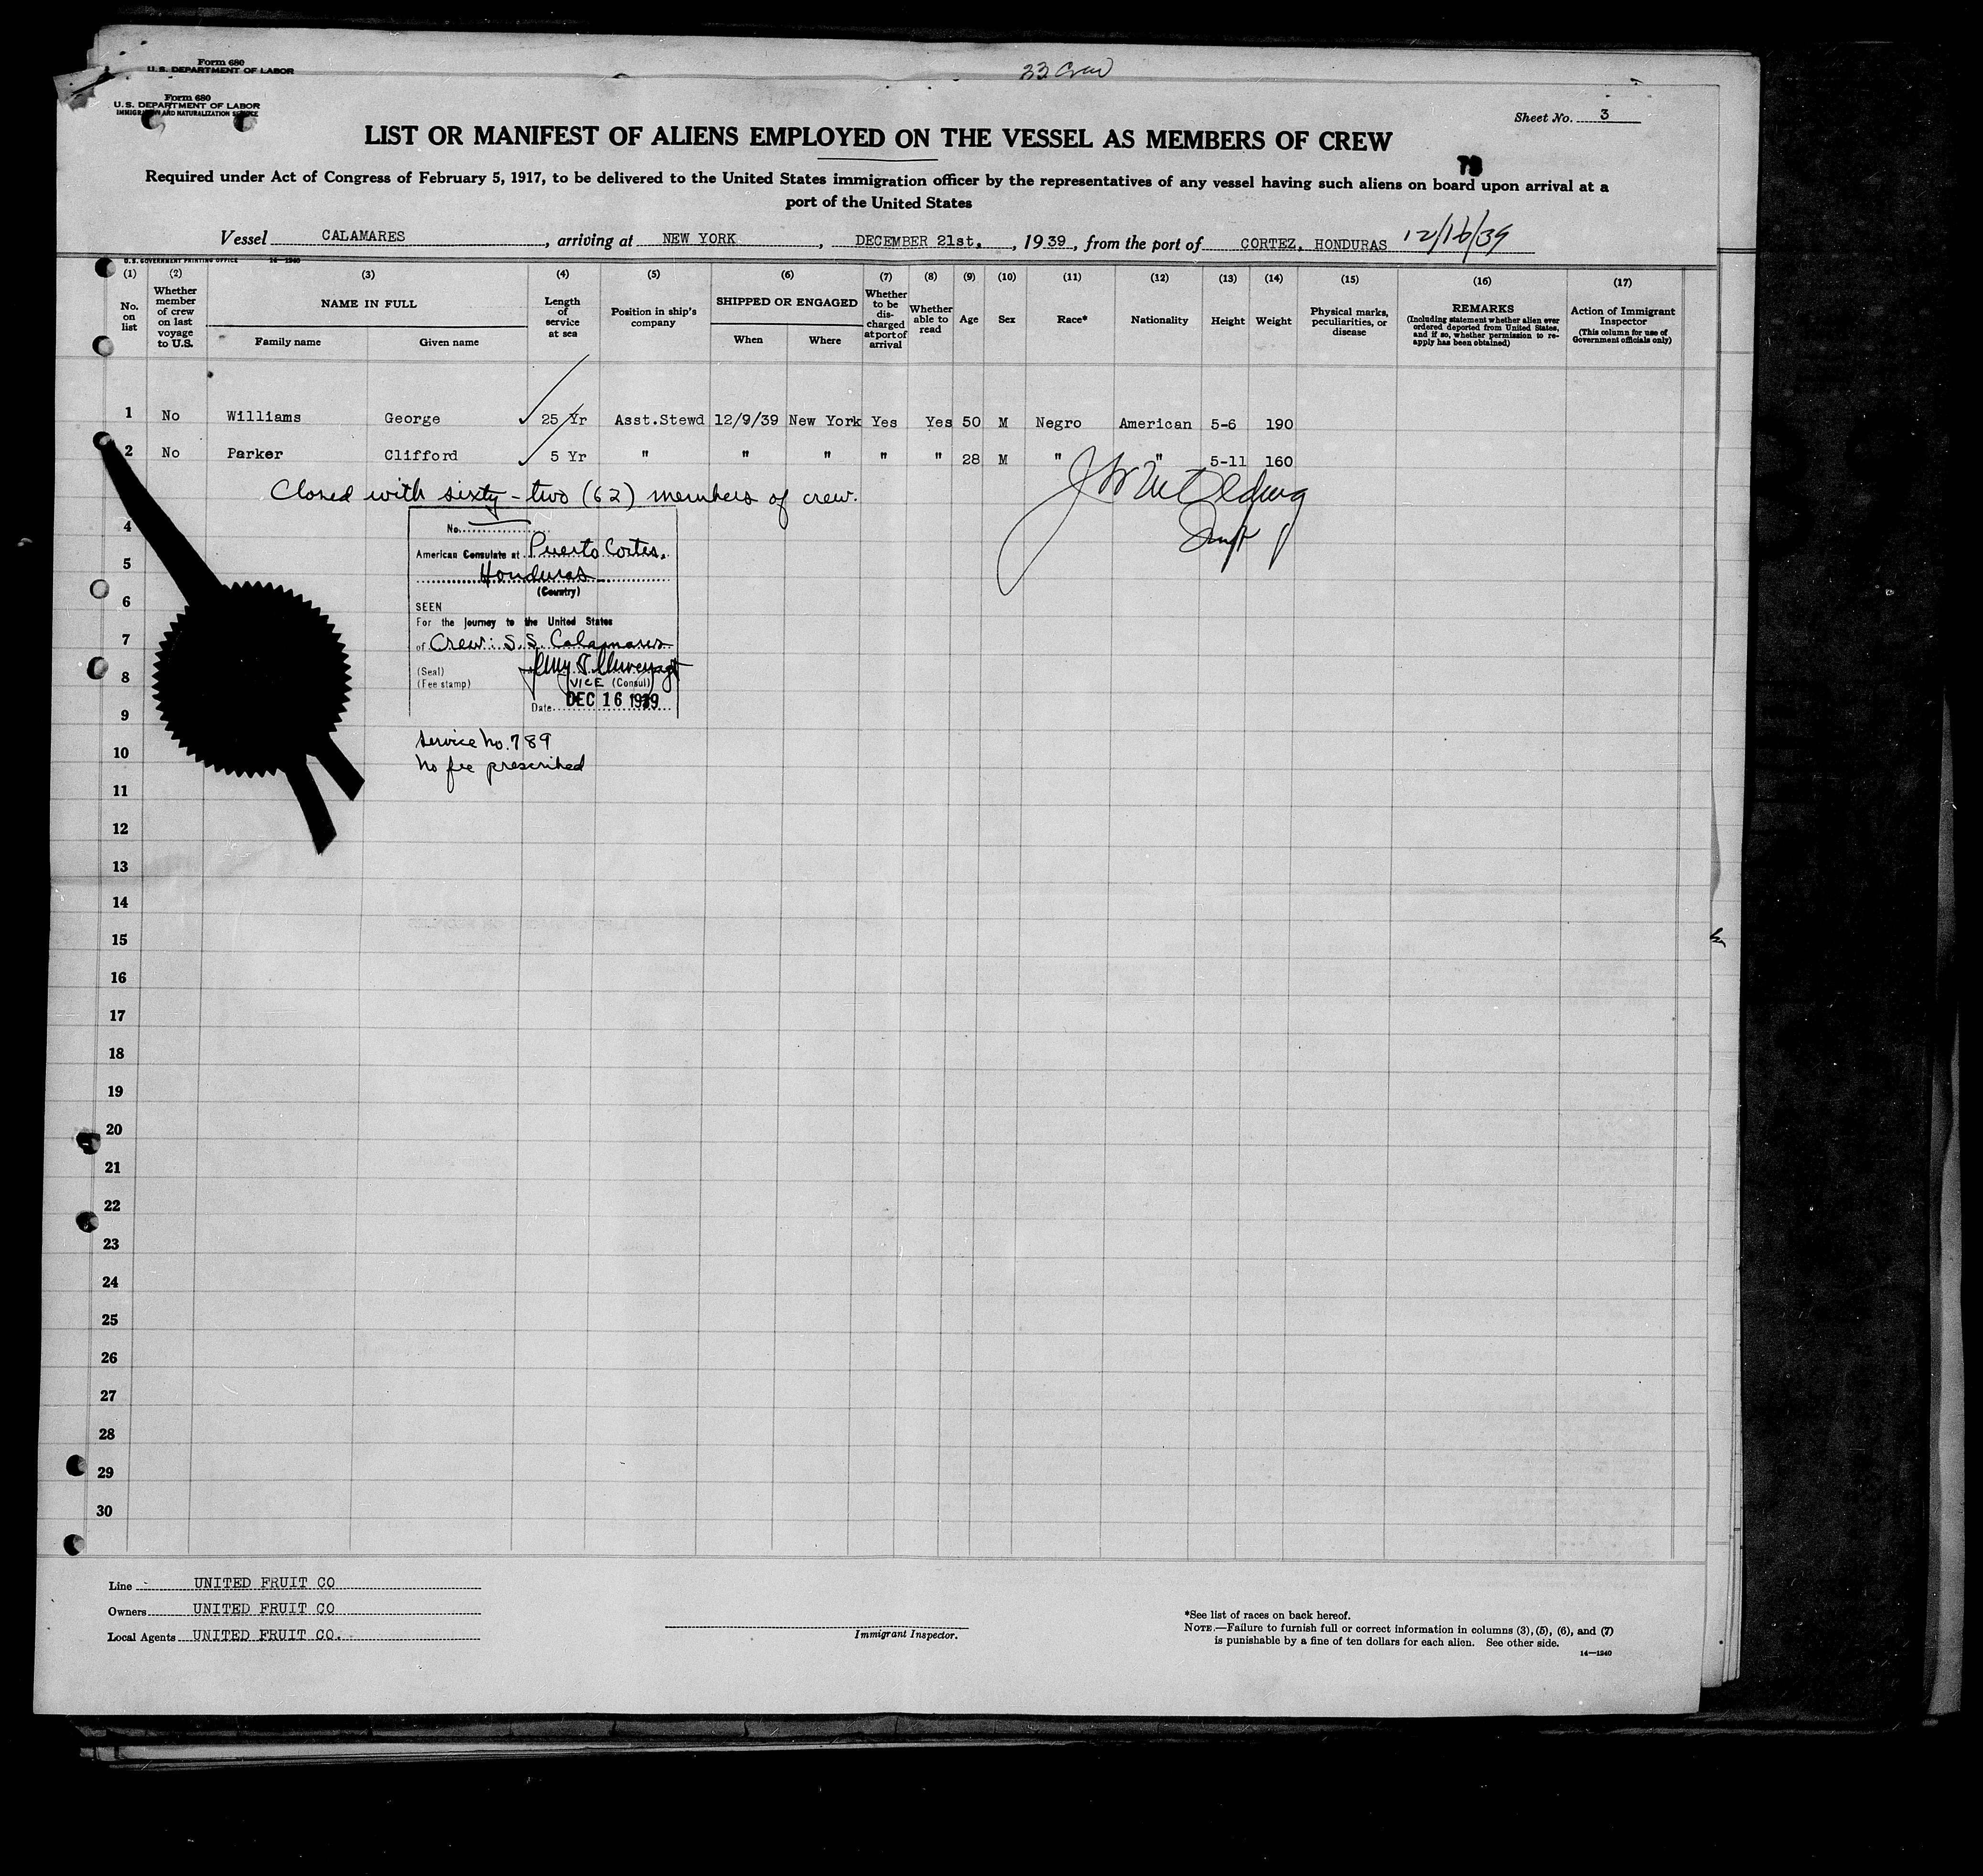 Form 680
U. S. DEPARTMENT OF LABOR
33 Crew
Form 680
U. S. DEPARTMENT OF LABOR
IMMIGRATION AND NATURALIZATION SERVICE
Sheet No. 3
LIST OR MANIFEST OF ALIENS EMPLOYED ON THE VESSEL AS MEMBERS OF CREW
Required under Act of Congress of February 5, 1917, to be delivered to the United States immigration officer by the representatives of any vessel having such aliens on board upon arrival at a
port of the United States
Vessel CALAMARES, arriving at NEW YORK, DECEMBER 21st, 1939, from the port of CORTEZ, HONDURAS 12/16/39
U. S. GOVERNMENT PRINTING OFFICE 14—1240
(1) (2) (3) (4) (5) (6) (7) (8) (9) (10) (11) (12) (13) (14) (15) (16) (17)
No. on list
Whether member of crew on last voyage to U.S.
NAME IN FULL
Family name Given name
Length of service at sea
Position in ship's company
SHIPPED OR ENGAGED
When Where
Whether to be discharged at port of arrival
Whether able to read
Age
Sex
Race*
Nationality
Height
Weight
Physical marks, peculiarities, or disease
REMARKS
(Including statement whether alien ever ordered deported from United States, and if so, whether permission to re-apply has been obtained)
Action of Immigrant Inspector
(This column for use of Government officials only)
1 No Williams George 25 Yr Asst.Stewd 12/9/39 New York Yes Yes 50 M Negro American 5-6 190
2 No Parker Clifford 5 Yr " " " " " 28 M " " 5-11 160
Closed with sixty-two (62) members of crew.
No.
American Consulate at Puerto Cortes,
Honduras
(Country)
SEEN
For the journey to the United States
of Crew: S.S. Calamares
(Seal)
(Fee stamp)
VICE (Consul)
Date DEC 16 1939
Service No. 789
No fee prescribed
4
5
6
7
8
9
10
11
12
13
14
15
16
17
18
19
20
21
22
23
24
25
26
27
28
29
30
Line UNITED FRUIT CO
Owners UNITED FRUIT CO
Local Agents UNITED FRUIT CO.
Immigrant Inspector.
*See list of races on back hereof.
NOTE.—Failure to furnish full or correct information in columns (3), (5), (6), and (7)
is punishable by a fine of ten dollars for each alien. See other side.
14—1240